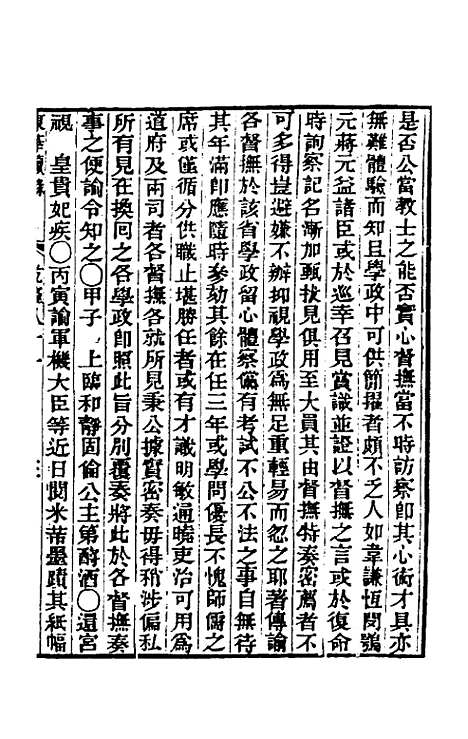 是否公當教士之能否實心督撫當不時訪察卽其心術才具亦
無難體驗而知且學政中可供簡擢者頗不乏人如韋謙恆閔鶚
元蔣元益諸臣或於巡幸召見賞識並證以督撫之言或於復命
時詢察記名漸加甄拔見俱用至大員其由督撫特奏密薦者不
可多得豈避嫌不辦抑視學政爲無足重輕易而忽之耶著傳諭
各督撫於該省學政留心體察儻有考試不公不法之事自無待
其年滿卽應隨時參劾其餘在任三年或學問優長不愧師儒之
席或僅循分供職止堪勝任者或有才識明敏通曉吏治可用爲
道府及兩司者各督撫各就所見秉公據實密奏毋得稍涉偏私
所有見在換回之各學政卽照此旨分別覆奏將此於各督撫奏
事之便諭令知之〇甲子 上臨和靜固倫公主第酹酒〇還宮
視 皇貴妃疾〇丙寅諭軍機大臣等近日閱米芾墨蹟其紙幅